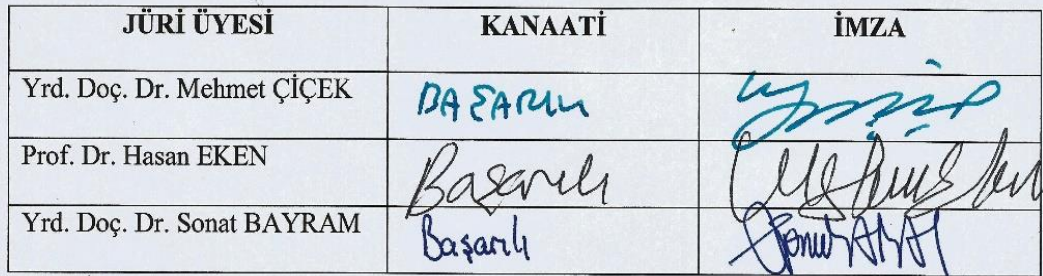 JÜRİ ÜYESİ KANAATİ İMZA
Yrd. Doç. Dr. Mehmet ÇİÇEK BAŞARILI
Prof. Dr. Hasan EKEN Başarılı
Yrd. Doç. Dr. Sonat BAYRAM Başarılı